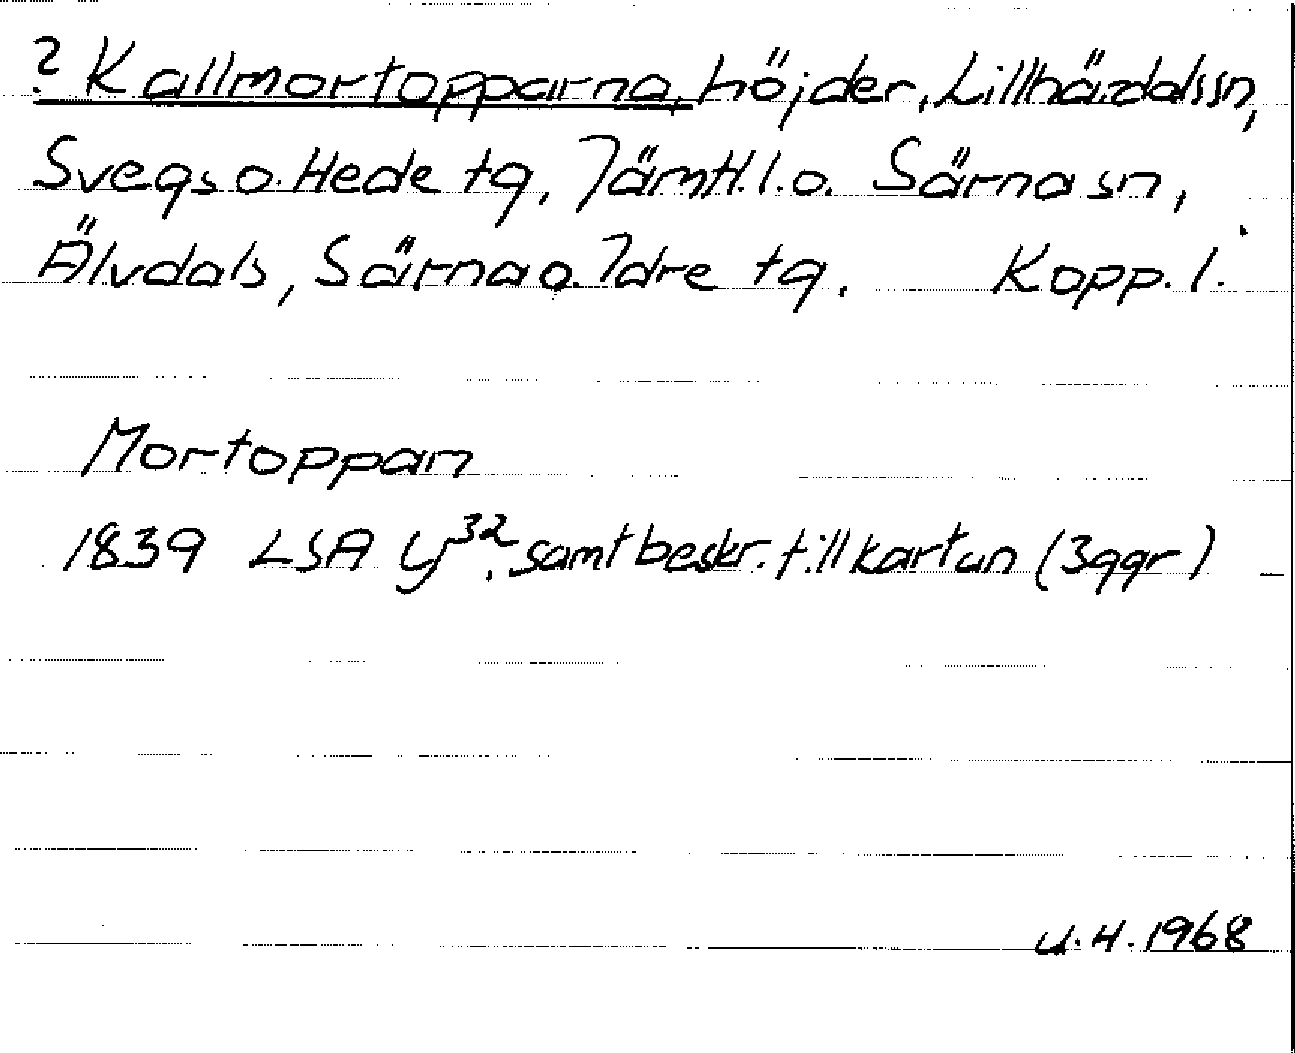 ? Kallmortopparna, höjder, Lillhärdals sn,
Svegs o. Hede tg, Jämtl. l. o. Särna sn,
Älvdals, Särna o. Idre tg. Kopp. l.
Mortoppan
1839 LSA y³². samt beskr. till kartan (3 ggr)
U. H. 1968